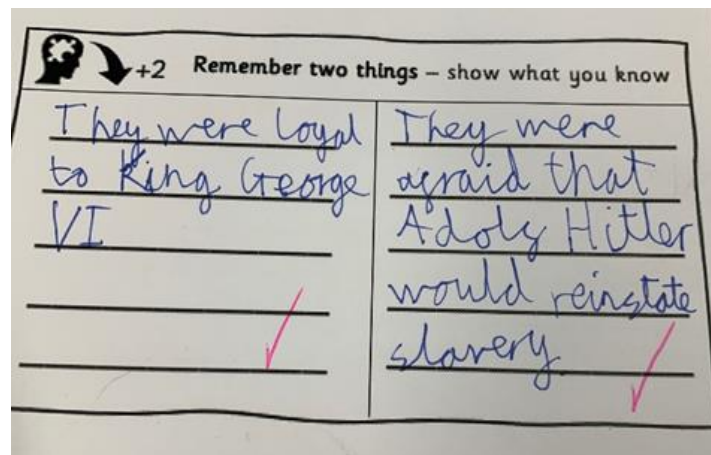 +2 Remember two things – show what you know
They were loyal
to King George
VI
They were
afraid that
Adolf Hitler
would reinstate
slavery.